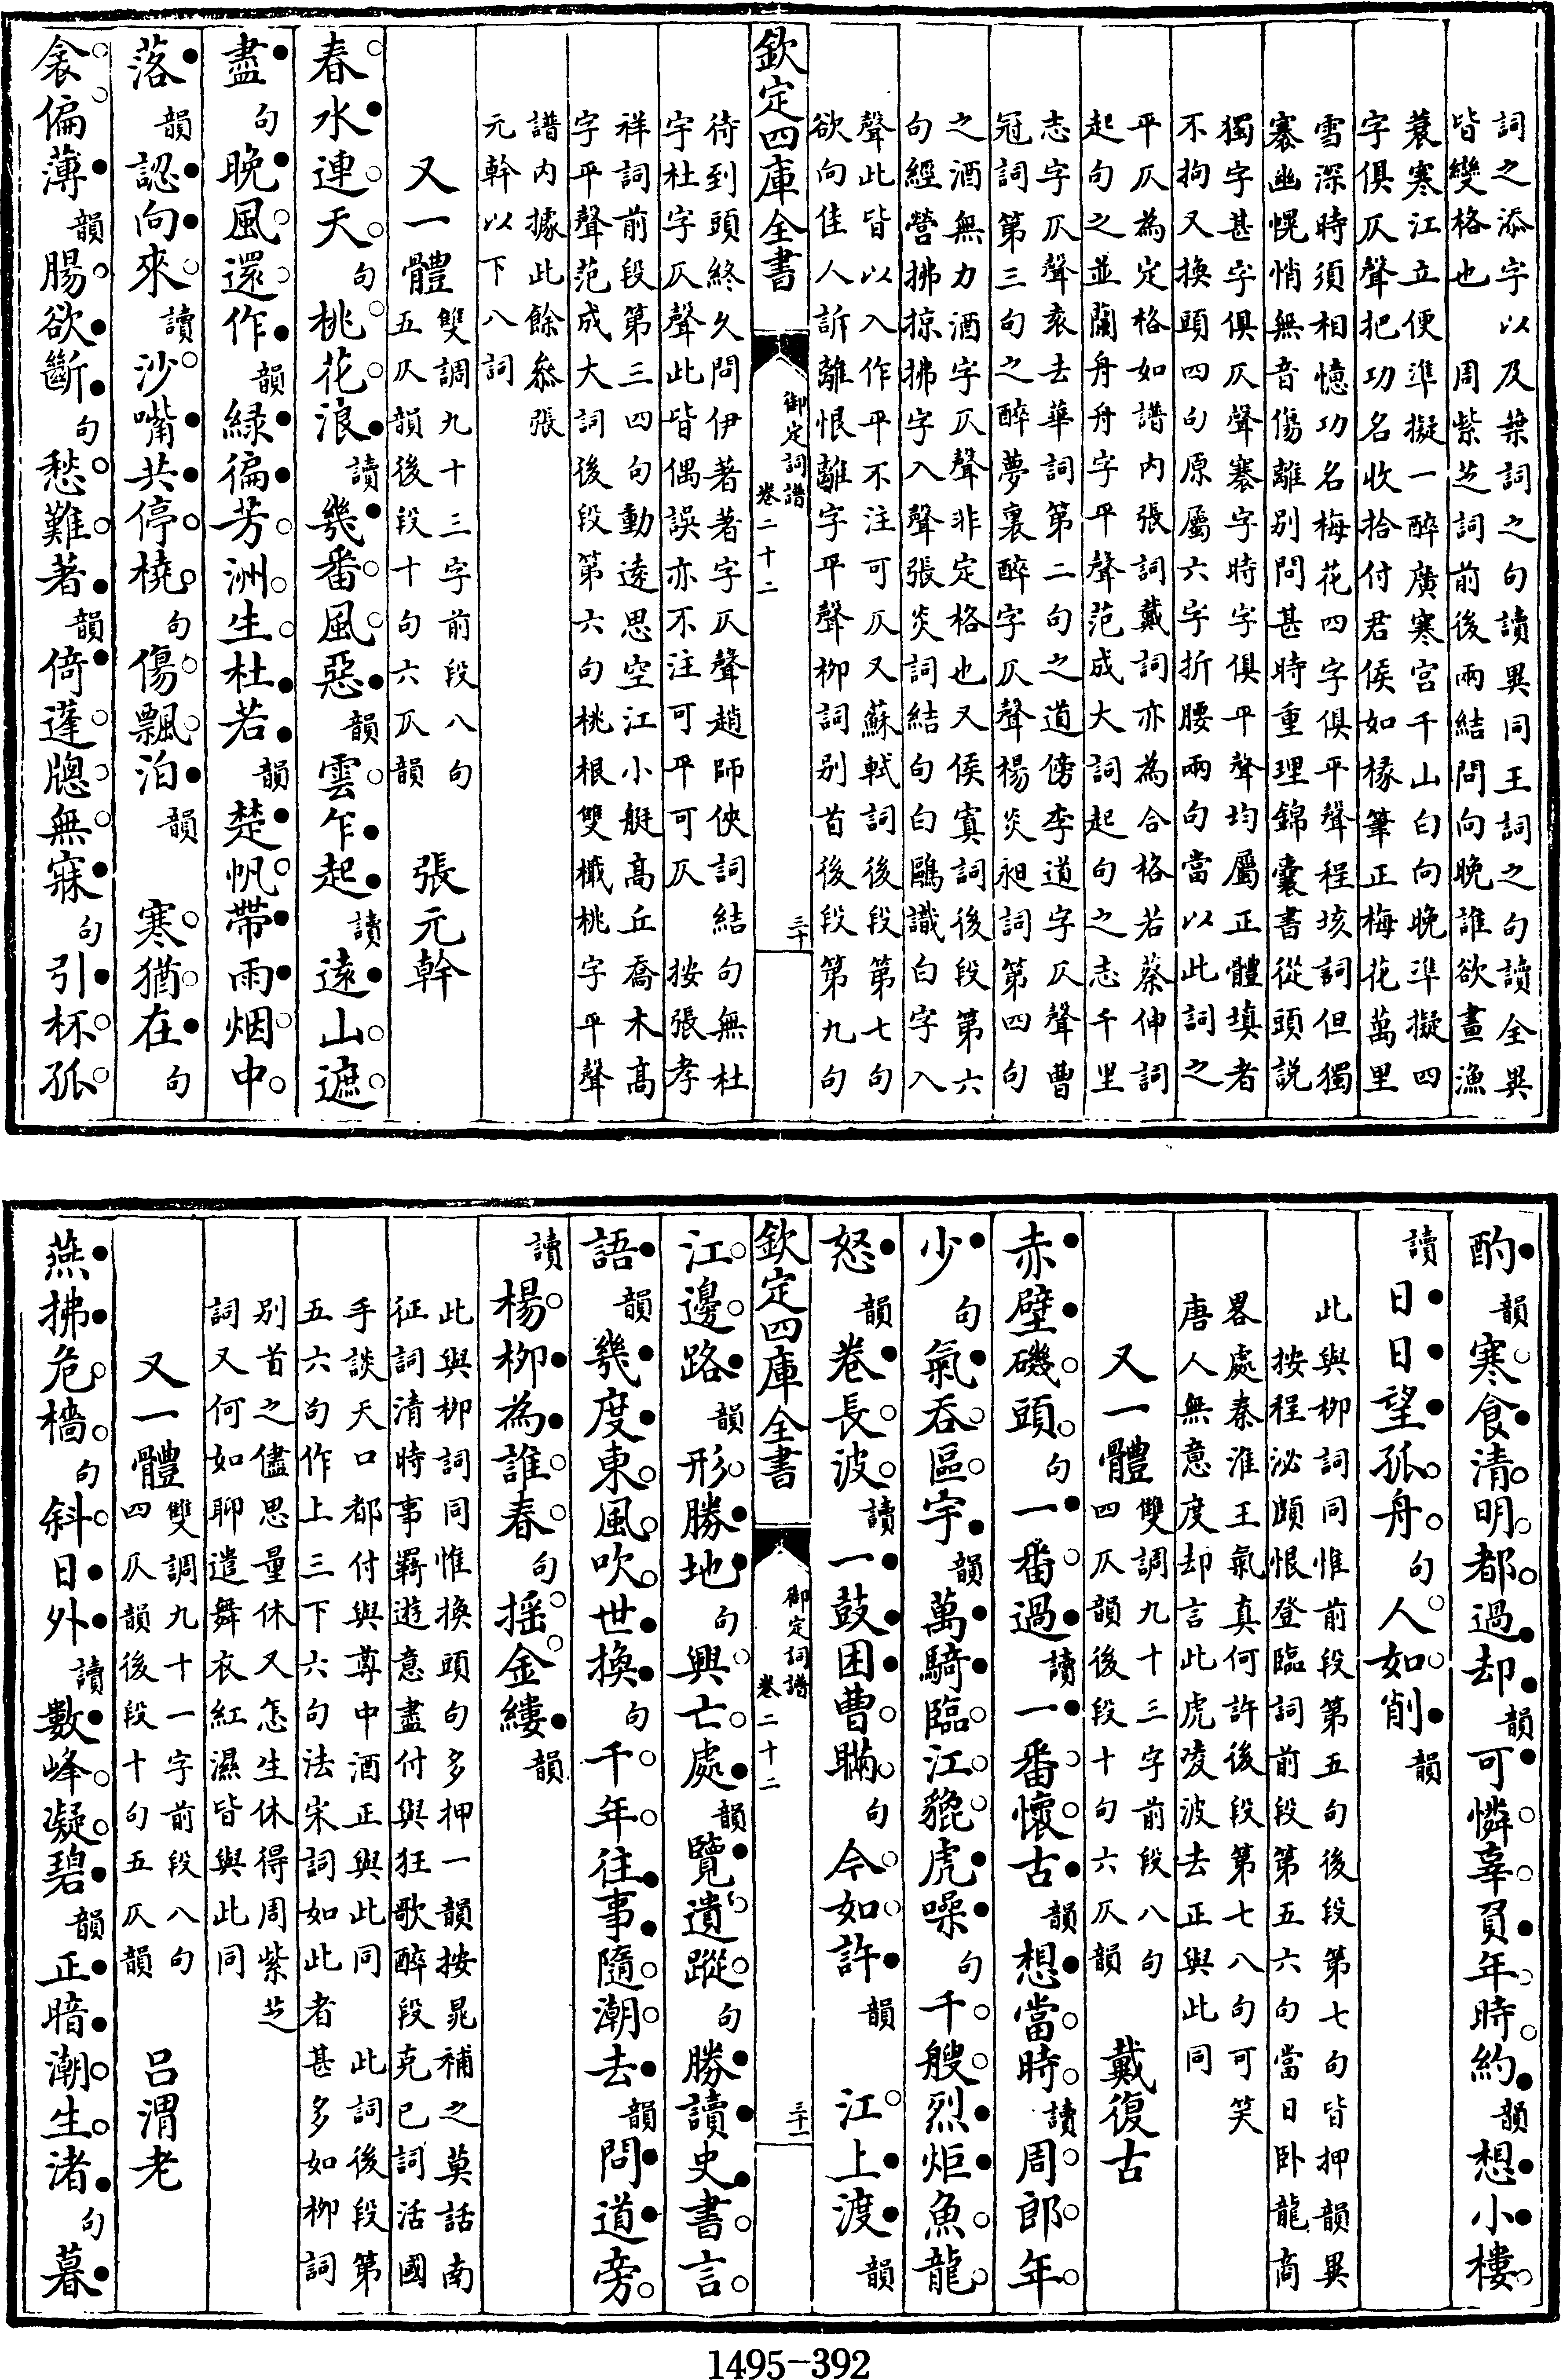 詞之添字以及葉詞之句讀異同王詞之句讀全異
皆變格也 周紫芝詞前後兩結問向晚誰欲畫漁
蓑寒江立便準擬一醉廣寒宮千山白向晚準擬四
字俱仄聲把功名收拾付君侯如椽筆正梅花萬里
雪深時須相憶功名梅花四字俱平聲程垓詞但獨
褰幽幌悄無音傷離別問甚時重理錦囊書從頭說
獨字甚字俱仄聲褰字時字俱平聲均屬正體填者
不拘又換頭四句原屬六字折腰兩句當以此詞之
平仄為定格如譜内張詞戴詞亦為合格若蔡伸詞
起句之並蘭舟舟字平聲范成大詞起句之志千里
志字仄聲袁去華詞第二句之道傍李道字仄聲曹
冠詞第三句之醉夢裏醉字仄聲楊炎昶詞第四句
之酒無力酒字仄聲非定格也又侯寘詞後段第六
句經營拂掠拂字入聲張炎詞結句白鷗識白字入
聲此皆以入作平不注可仄又蘇軾詞後段第七句
欲向佳人訴離恨離字平聲柳詞別首後段第九句
欽定四庫全書 御定詞譜 卷二十二 三十
待到頭終久問伊著著字仄聲趙師俠詞結句無杜
宇杜字仄聲此皆偶誤亦不注可平可仄 按張孝
祥詞前段第三四句動遠思空江小艇高丘喬木高
字平聲范成大詞後段第六句桃根雙檝桃字平聲
譜内據此餘叅張
元幹以下八詞
又一體 雙調九十三字前段八句 五仄韻後段十句六仄韻 張元幹
春水連天句桃花浪讀幾番風惡韻雲乍起讀遠山遮
盡句晚風還作韻緑徧芳洲生杜若韻楚帆帶雨烟中
落韻認向來讀沙嘴共停橈句傷飄泊韻 寒猶在句
衾偏薄韻腸欲斷句愁難著韻倚蓬牕無寐句引杯孤
酌韻寒食清明都過却韻可憐辜負年時約韻想小樓
讀日日望孤舟句人如削韻
此與柳詞同惟前段第五句後段第七句皆押韻異
按程泌頗恨登臨詞前段第五六句當日卧龍商
畧處秦淮王氣真何許後段第七八句可笑
唐人無意度却言此虎凌波去正與此同
又一體 雙調九十三字前段八句 四仄韻後段十句六仄韻 戴復古
赤壁磯頭句一番過讀一番懷古韻想當時讀周郎年
少句氣吞區宇韻萬騎臨江貔虎噪句千艘烈炬魚龍
怒韻卷長波讀一鼓困曹瞞句今如許韻 江上渡韻
欽定四庫全書 御定詞譜 卷二十二 三十一
江邊路韻形勝地句興亡處韻覽遺蹤句勝讀史書言
語韻幾度東風吹世換句千年往事隨潮去韻問道旁
讀楊柳為誰春句搖金縷韻
此與柳詞同惟換頭句多押一韻按晁補之莫話南
征詞清時事羇遊意盡付與狂歌醉段克已詞活國
手談天口都付與尊中酒正與此同 此詞後段第
五六句作上三下六句法宋詞如此者甚多如柳詞
別首之儘思量休又怎生休得周紫芝
詞又何如聊遣舞衣紅濕皆與此同
又一體 雙調九十一字前段八句 四仄韻後段十句五仄韻 吕渭老
燕拂危檣句斜日外讀數峰凝碧韻正暗潮生渚句暮
1495-392